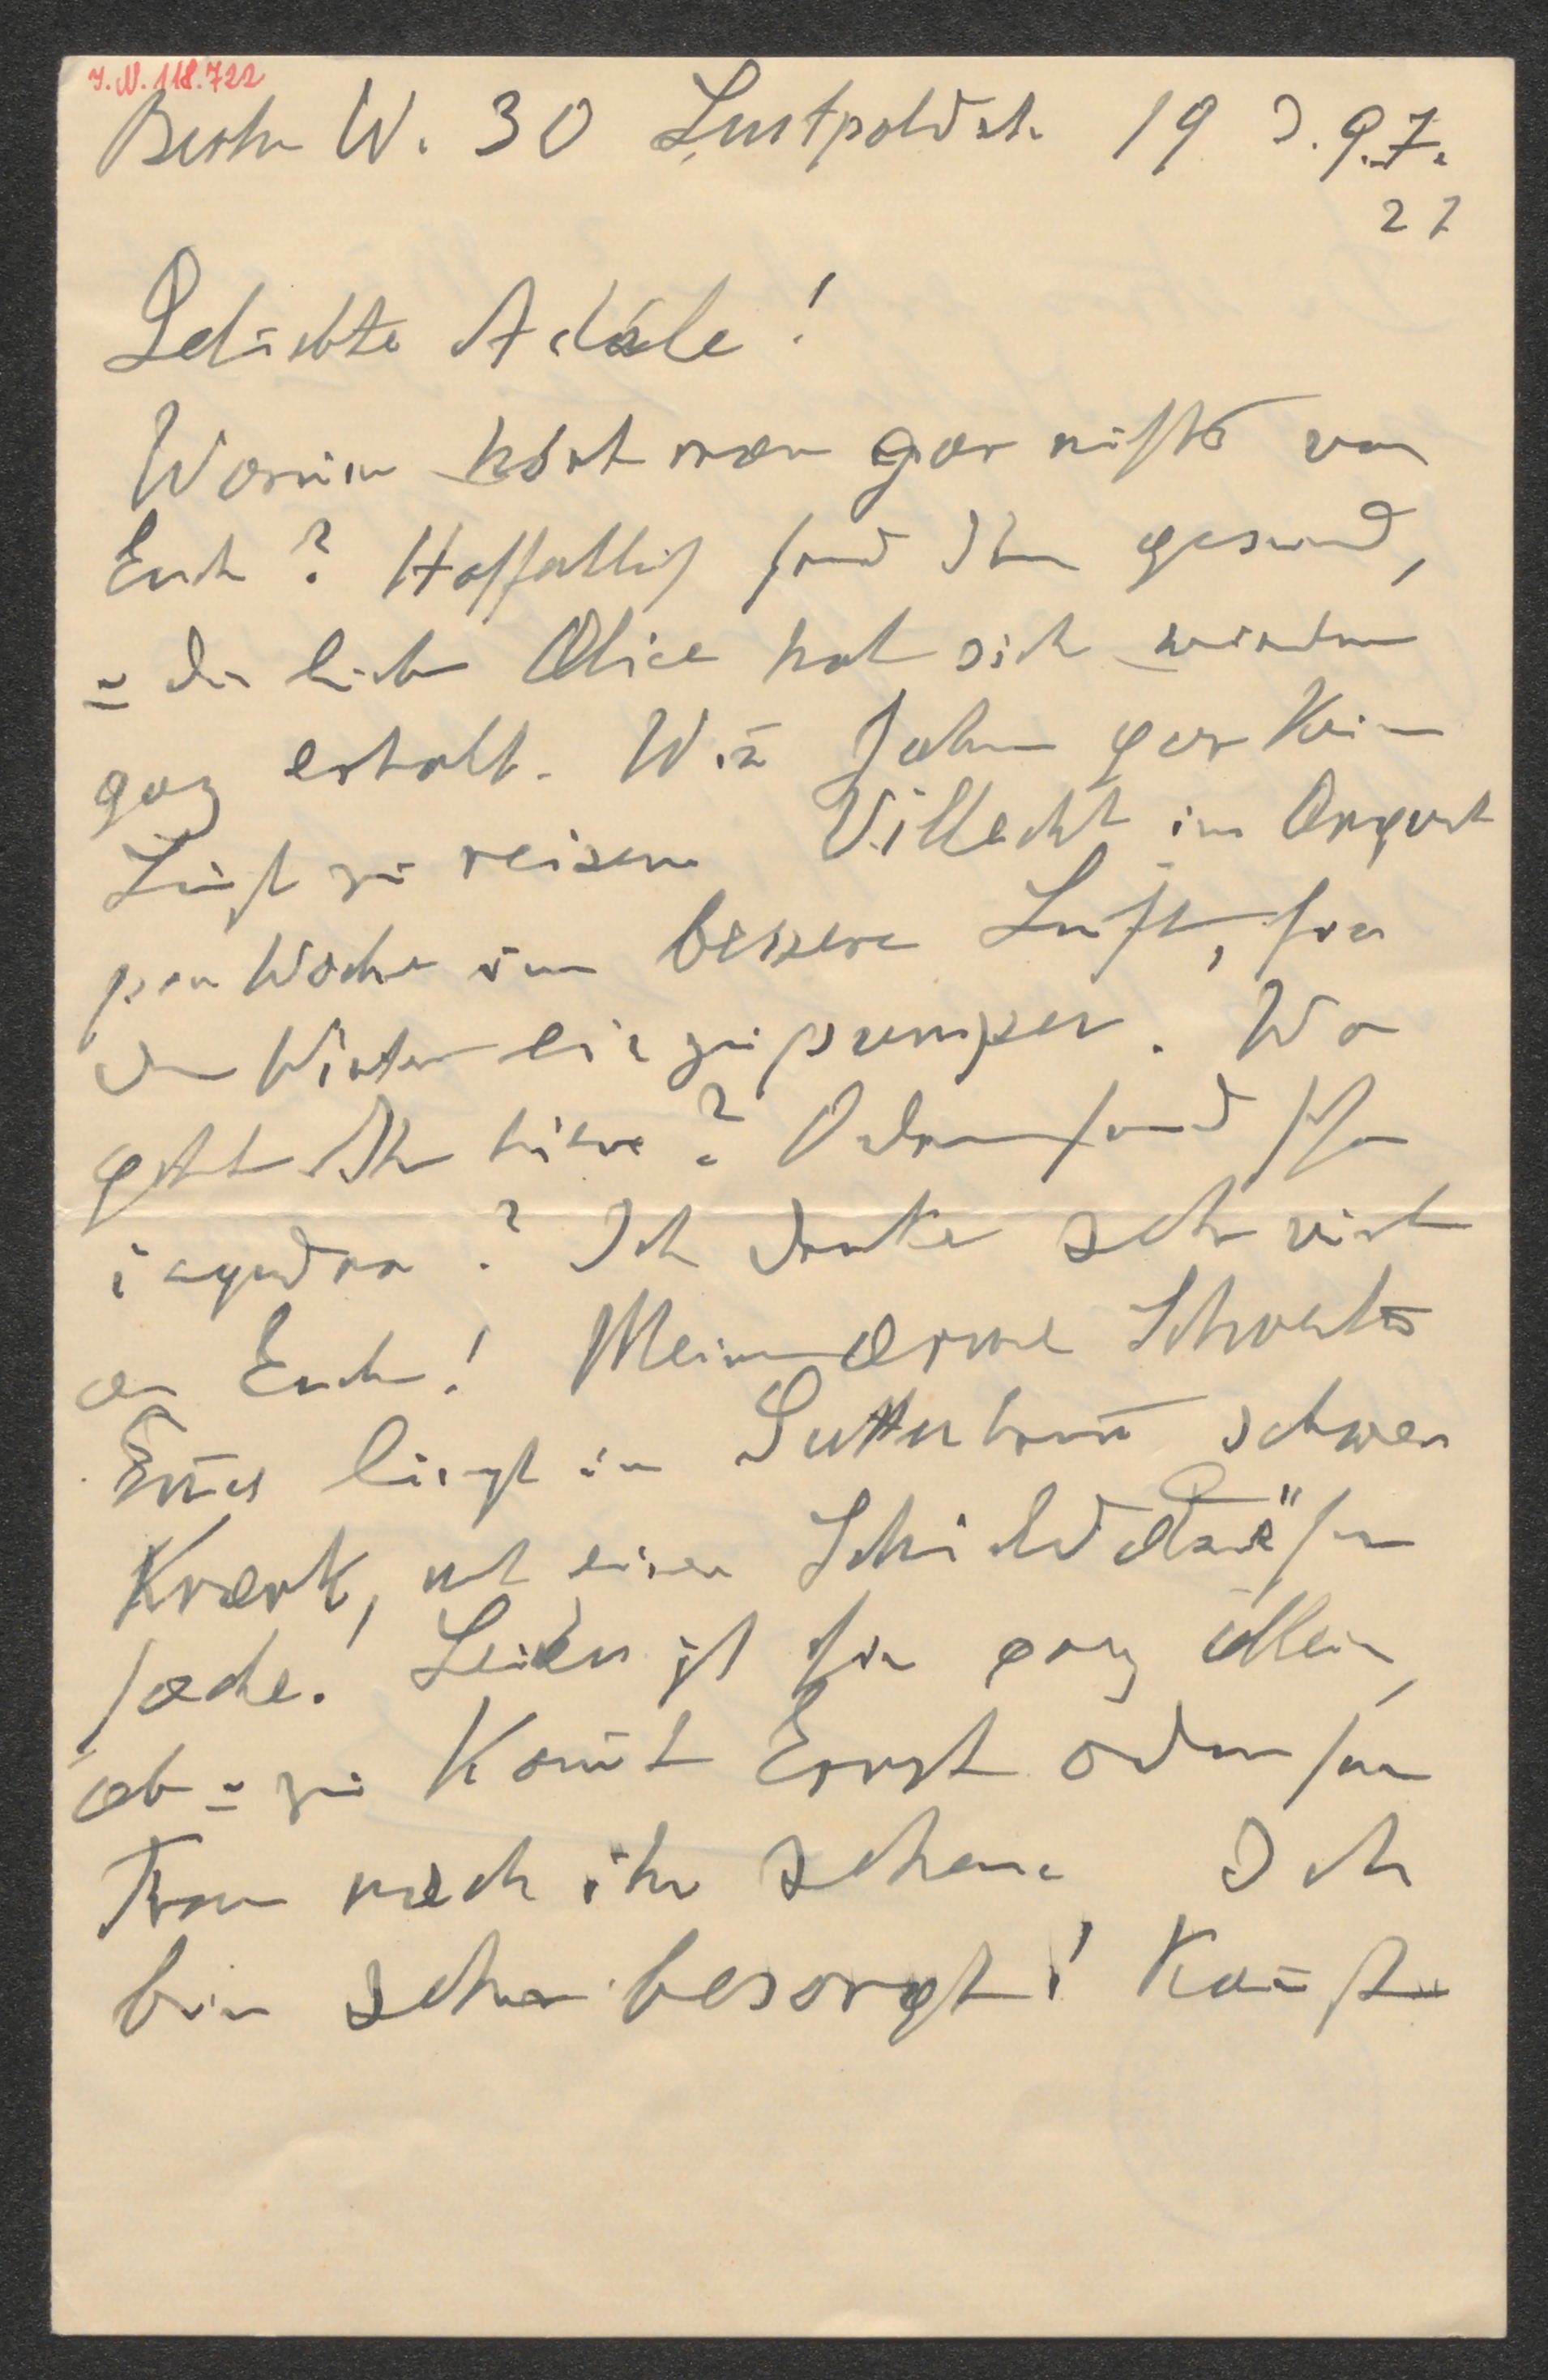 I.N. 118.722
Berlin W. 30 Luitpoldstr. 19 d. 9.7.
27
Geliebte Adèle!
Warum hört man gar nichts von
Euch? Hoffentlich seid Ihr gesund,
u die liebe Alice hat sich wieder
ganz erholt. Wir haben gar keine
Lust zu reisen Vielleicht im August
paar Wochen um bessere Luft, für
den Winter einzupumpen. Wo
geht Ihr hin? Oder seid schon
irgendwo? Ich denke sehr viel
an Euch! Meine arme Schwester
liegt in schwer
krank, mit einer Schilddrüsen
sache! Leider ist sie ganz allein,
ab u zu kom̄t Ernst oder seine
Frau nach ihr sehen. Ich
bin sehr besorgt! Kannst